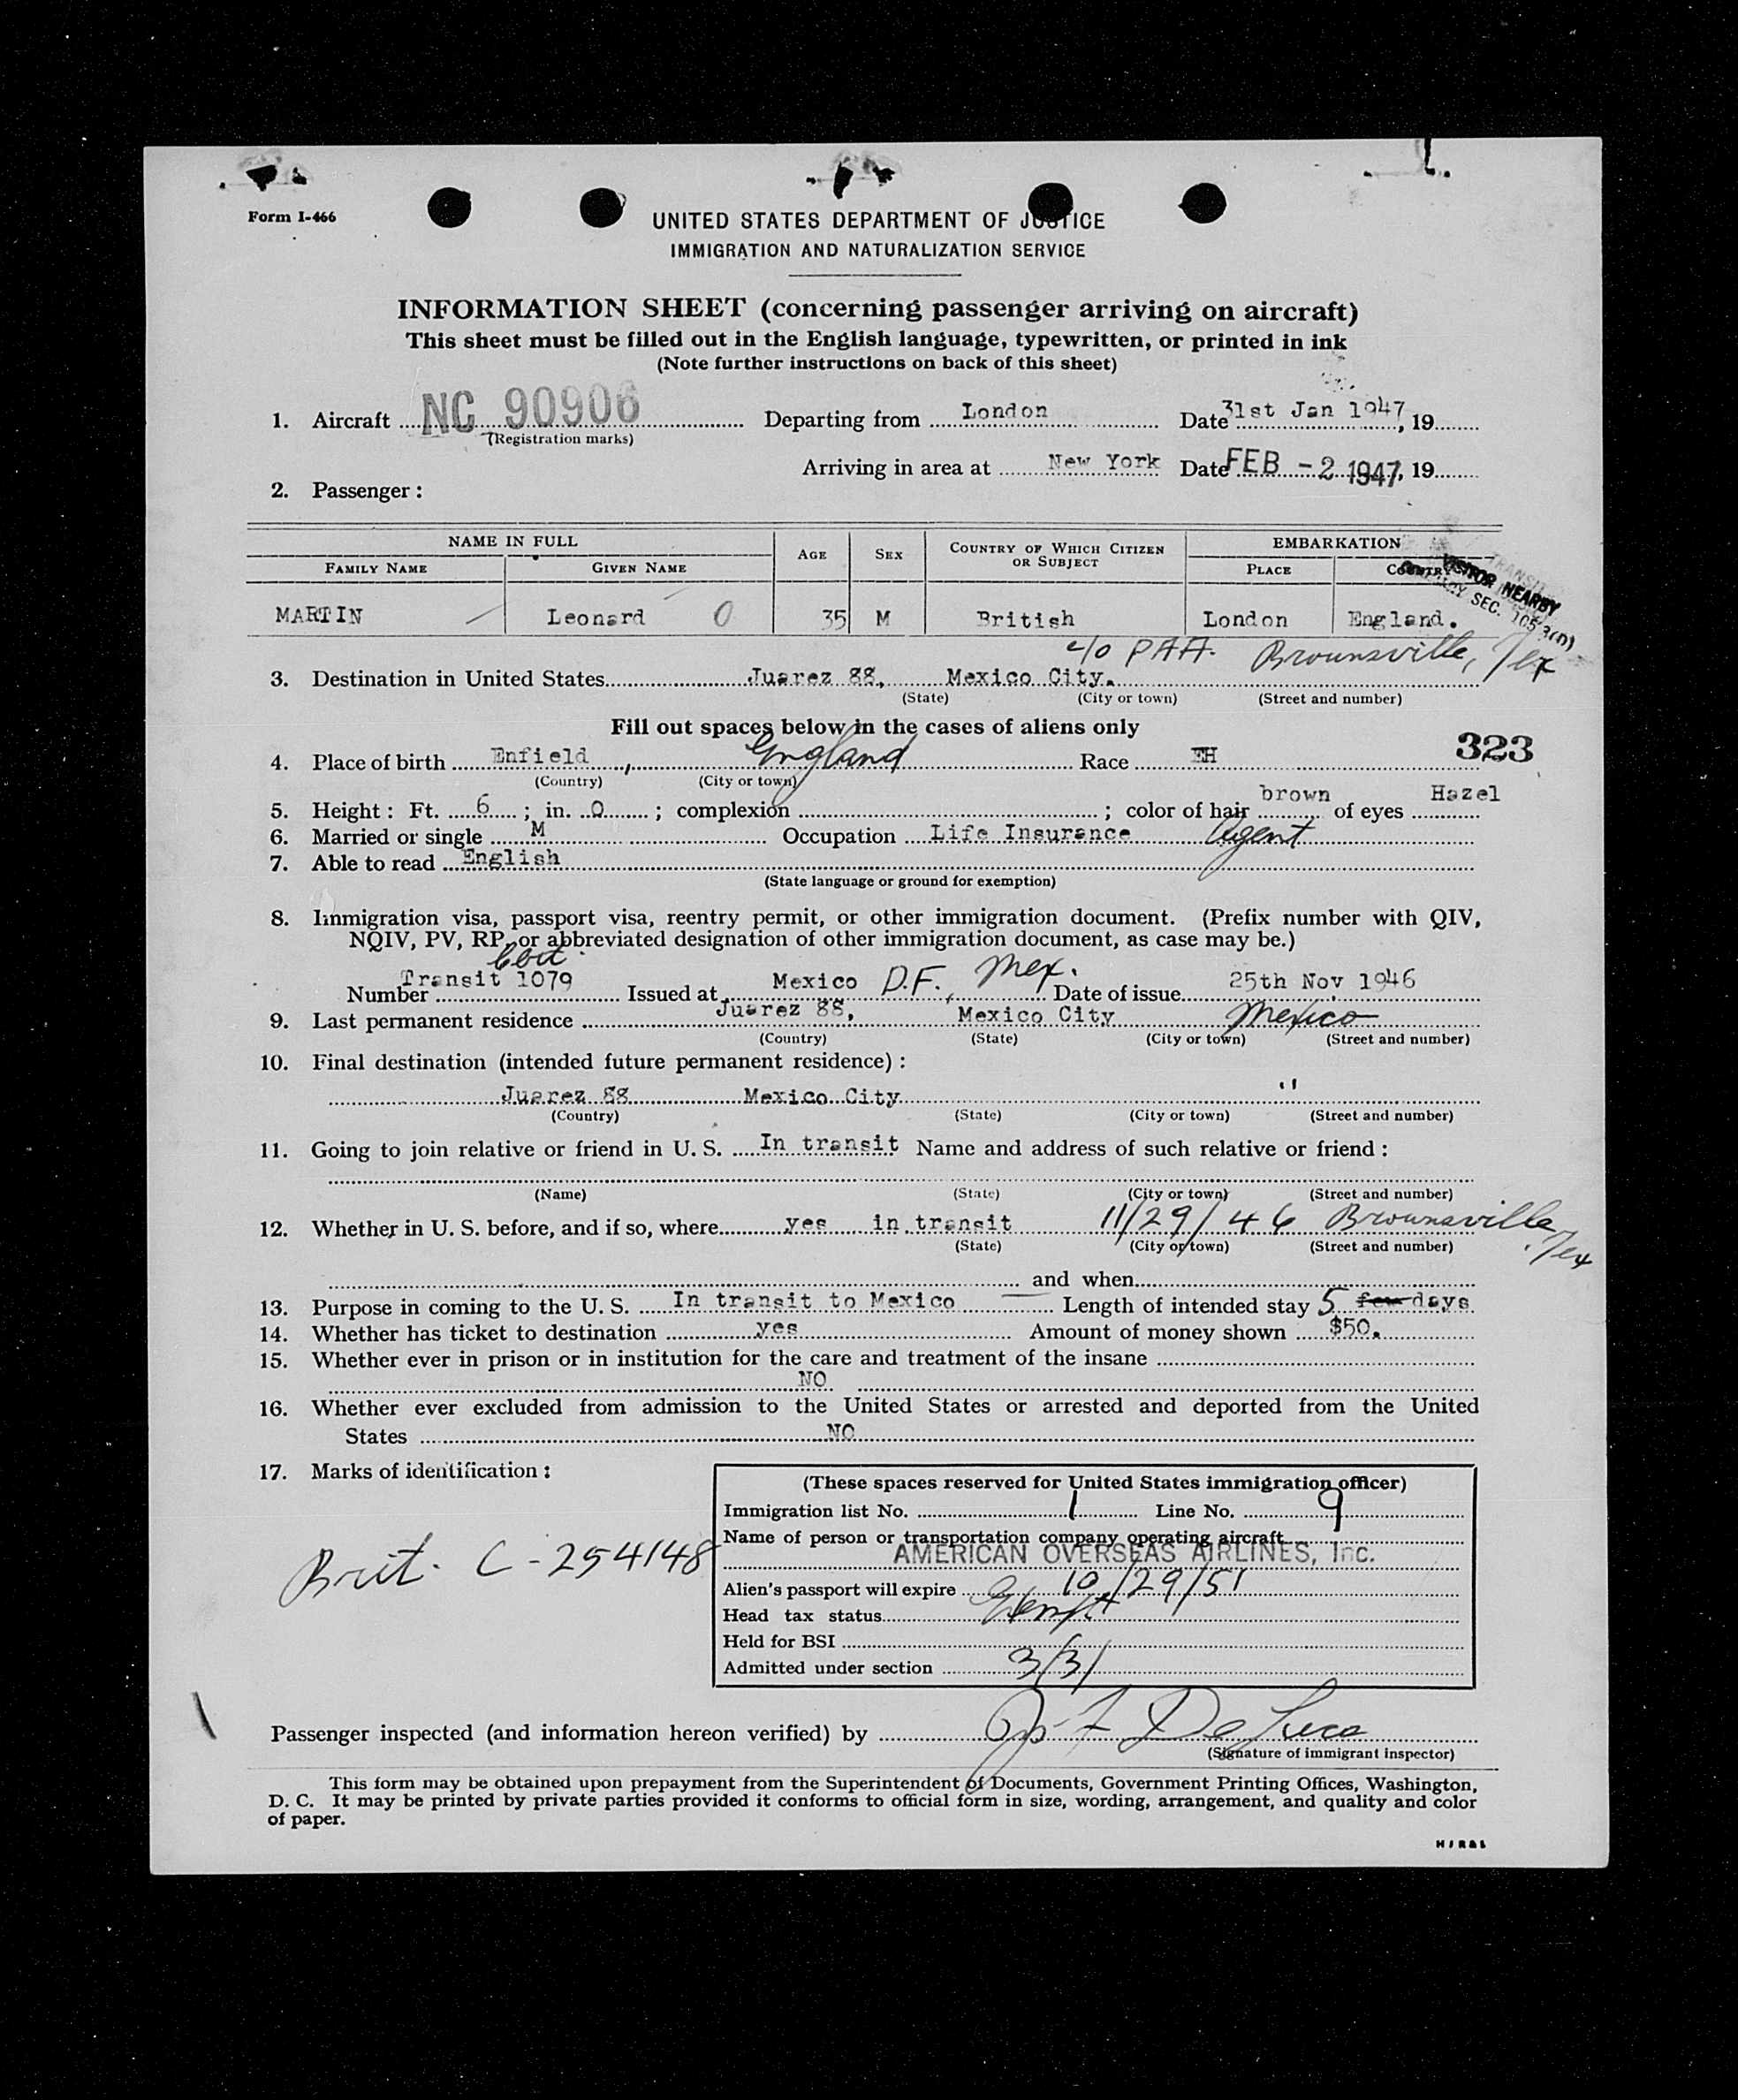 Form I-466
UNITED STATES DEPARTMENT OF JUSTICE
IMMIGRATION AND NATURALIZATION SERVICE
INFORMATION SHEET (concerning passenger arriving on aircraft)
This sheet must be filled out in the English language, typewritten, or printed in ink
(Note further instructions on back of this sheet)
1. Aircraft NC 90906 Departing from London Date 31st Jan 1947, 19
(Registration marks)
Arriving in area at New York Date FEB - 2 1947, 19
2. Passenger:
NAME IN FULL AGE SEX COUNTRY OF WHICH CITIZEN OR SUBJECT EMBARKATION
FAMILY NAME GIVEN NAME PLACE COUNTRY
VISITOR NEARBY
SEC. 105.3(D)
MARTIN Leonard O 35 M British London England.
c/o PAA. Brownsville, Tex
3. Destination in United States Juarez 88, Mexico City.
(State) (City or town) (Street and number)
Fill out spaces below in the cases of aliens only
323
4. Place of birth Enfield, England Race EH
(Country) (City or town)
5. Height: Ft. 6; in. 0; complexion ; color of hair brown of eyes Hazel
6. Married or single M Occupation Life Insurance Agent
7. Able to read English
(State language or ground for exemption)
8. Immigration visa, passport visa, reentry permit, or other immigration document. (Prefix number with QIV,
NQIV, PV, RP, or abbreviated designation of other immigration document, as case may be.)
Number Transit 1079 Issued at Mexico D.F., Mex. Date of issue 25th Nov 1946
9. Last permanent residence Juarez 88, Mexico City Mexico
(Country) (State) (City or town) (Street and number)
10. Final destination (intended future permanent residence):
Juarez 88 Mexico City "
(Country) (State) (City or town) (Street and number)
11. Going to join relative or friend in U. S. In transit Name and address of such relative or friend:
(Name) (State) (City or town) (Street and number)
12. Whether in U. S. before, and if so, where yes in transit 11/29/46 Brownsville, Tex
(State) (City or town) (Street and number)
and when
13. Purpose in coming to the U. S. In transit to Mexico Length of intended stay 5 few days
14. Whether has ticket to destination yes Amount of money shown $50.
15. Whether ever in prison or in institution for the care and treatment of the insane
NO
16. Whether ever excluded from admission to the United States or arrested and deported from the United
States NO
17. Marks of identification:
Brit. C-254148
(These spaces reserved for United States immigration officer)
Immigration list No. 1 Line No. 9
Name of person or transportation company operating aircraft
AMERICAN OVERSEAS AIRLINES, Inc.
Alien's passport will expire 10/29/51
Head tax status Exempt
Held for BSI
Admitted under section 3/3/
Passenger inspected (and information hereon verified) by De Luca
(Signature of immigrant inspector)
This form may be obtained upon prepayment from the Superintendent of Documents, Government Printing Offices, Washington,
D. C. It may be printed by private parties provided it conforms to official form in size, wording, arrangement, and quality and color
of paper.